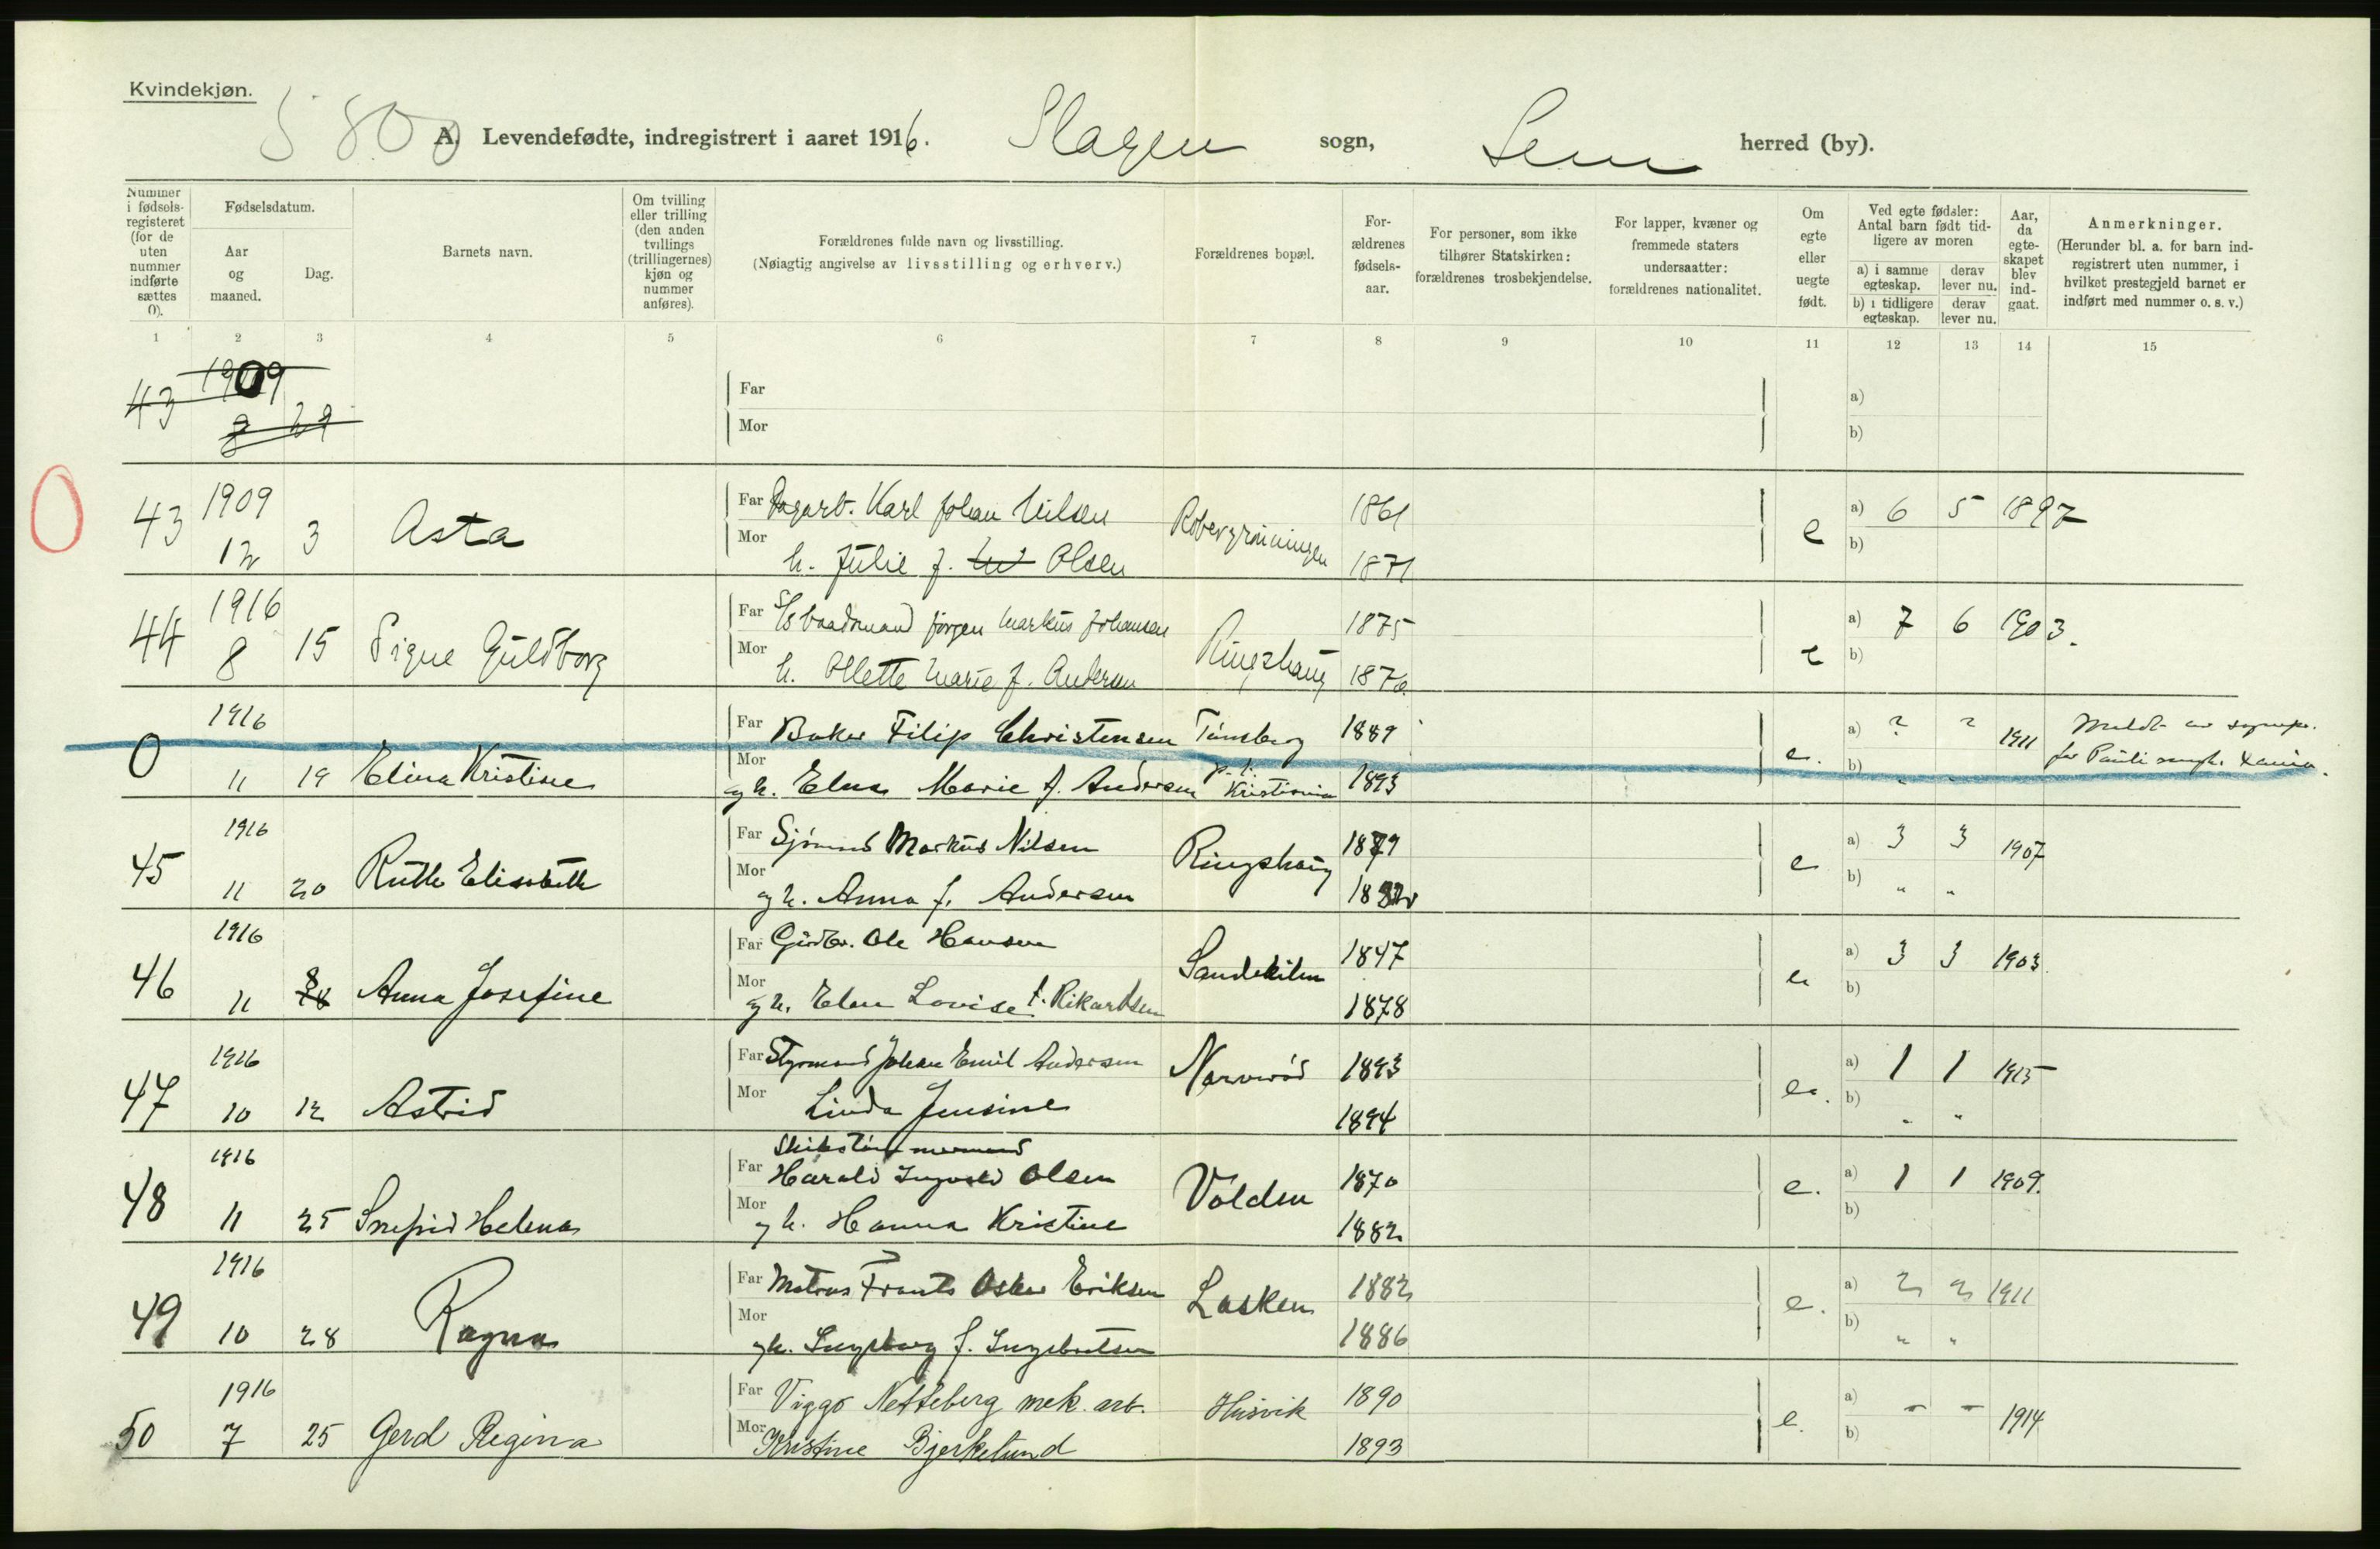 Kvindekjøn.
5 800
A. Levendefødte, indregistrert i aaret 1916. Slagen sogn, Sem herred (by).
Nummer i fødselsregisteret (for de uten nummer indførte sættes 0).
Fødselsdatum.
Aar og maaned.
Dag.
Barnets navn.
Om tvilling eller trilling (den anden tvillings (trillingernes) kjøn og nummer anføres).
Forældrenes fulde navn og livsstilling.
(Nøiagtig angivelse av livsstilling og erhverv.)
Forældrenes bopæl.
Forældrenes fødselsaar.
For personer, som ikke tilhører Statskirken: forældrenes trosbekjendelse.
For lapper, kvæner og fremmede staters undersaatter: forældrenes nationalitet.
Om egte eller uegte født.
Ved egte fødsler: Antal barn født tidligere av moren
a) i samme egteskap. derav lever nu.
b) i tidligere egteskap. derav lever nu.
Aar, da egteskapet blev indgaat.
Anmerkninger.
(Herunder bl. a. for barn indregistrert uten nummer, i hvilket prestegjeld barnet er indført med nummer o. s. v.)
1 2 3 4 5 6 7 8 9 10 11 12 13 14 15
43 1909 Far a)
8 29 Mor b)
43 1909 Far Dagarb. Karl Johan Nilsen 1861 a) 6 5 1897
12 3 Asta Mor h. Julie f. Olsen 1871 e b)
44 1916 Far Jørgen Markus Johansen Ringshaug 1875 a) 7 6 1903.
8 15 Signe Guldborg Mor h. Ollette Marie f. Andersen 1870 e b)
0 1916 Far Baker Filip Christensen Tønsberg 1889 a) ? ? 1911 Meldt av sognepr.
11 19 Elina Kristine Mor og h. Elna Marie f. Andersen p.t. Kristiania 1893 e. b) for Pauli Xania.
45 1916 Far Sjømand Markus Nilsen Ringshaug 1879 a) 3 3 1907
11 20 Ruth Elisabeth Mor og h. Anna f. Andersen 1882 e b) " "
46 1916 Far Gårdbr. Ole Hansen 1847 a) 3 3 1903
11 Anna Josefine Mor og h. Elen Lovise f. Rikardsen 1878 e b)
47 1916 Far Styrmand Johan Emil Andersen Narverød 1893 a) 1 1 1915
10 12 Astrid Mor Linda Jensine 1894 e. b) " "
48 1916 Skibstømmermand
Far Harald Ingvald Olsen Volden 1870 e. a) 1 1 1909.
11 25 Snefrid Helena Mor og h. Hanna Kristine 1882 b)
49 1916 Far Matros Frants Oskar Eriksen Lasken 1882 a) 2 2 1911
10 28 Ragna Mor og h. Ingeborg f. Ingebretsen 1886 e. b) " "
50 1916 Far Viggo Netteberg mek. arb. Husvik 1890 a) - - 1914
7 25 Gerd Regina Mor Kristine Bjerkelund 1893 e. b)